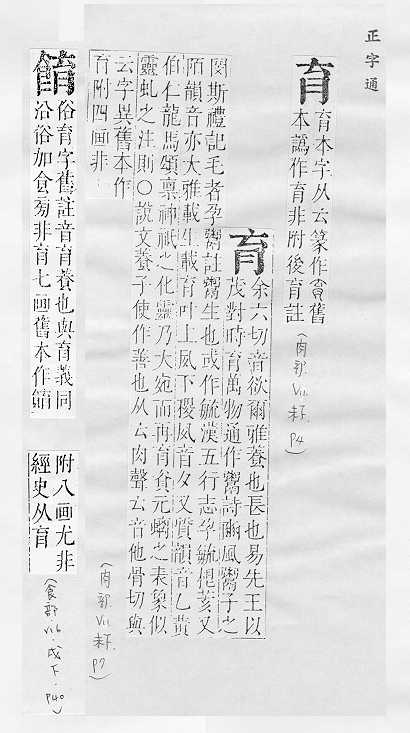 正字通
育 育本字从𠫓篆作𠫓舊
本譌作育非附後育註
(肉部 VII 未下 P4)
育 余六切音欲爾雅養也長也易先王以
茂對時育萬物通作鬻詩豳風鬻子之
閔斯禮記毛者孕鬻註鬻生也或作毓漢五行志孕毓根荄又
陌韻音亦大雅載生載育叶上夙下稷夙音夕又質韻音乙黃
伯仁龍馬頌禀神祇之化靈乃大宛而再育資元螭之表象似
靈虬之注則○說文養子使作善也从𠫓肉聲𠫓音他骨切與
云字異舊本作
育附四画非
(肉部 VII 未下 P7)
俗育字舊註音育養也與育義同
㳂俗加食旁非育七画舊本作䭇
附八画尤非
經史从育
(食部 V16 戌下 P40)